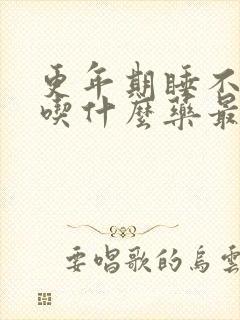 更年期睡不
喫什麼藥最
要唱歌的烏雲